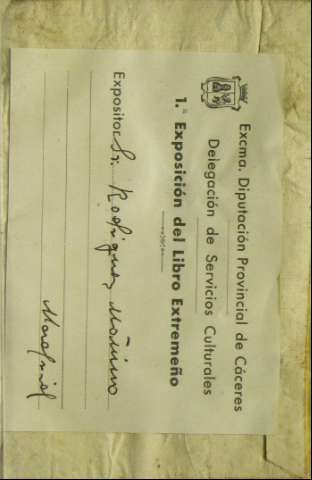 Excma. Diputación Provincial de Cáceres
Delegación de Servicios Culturales
1.ª Exposición del Libro Extremeño
Expositor Sr. Rodriguez Moñino
Madrid